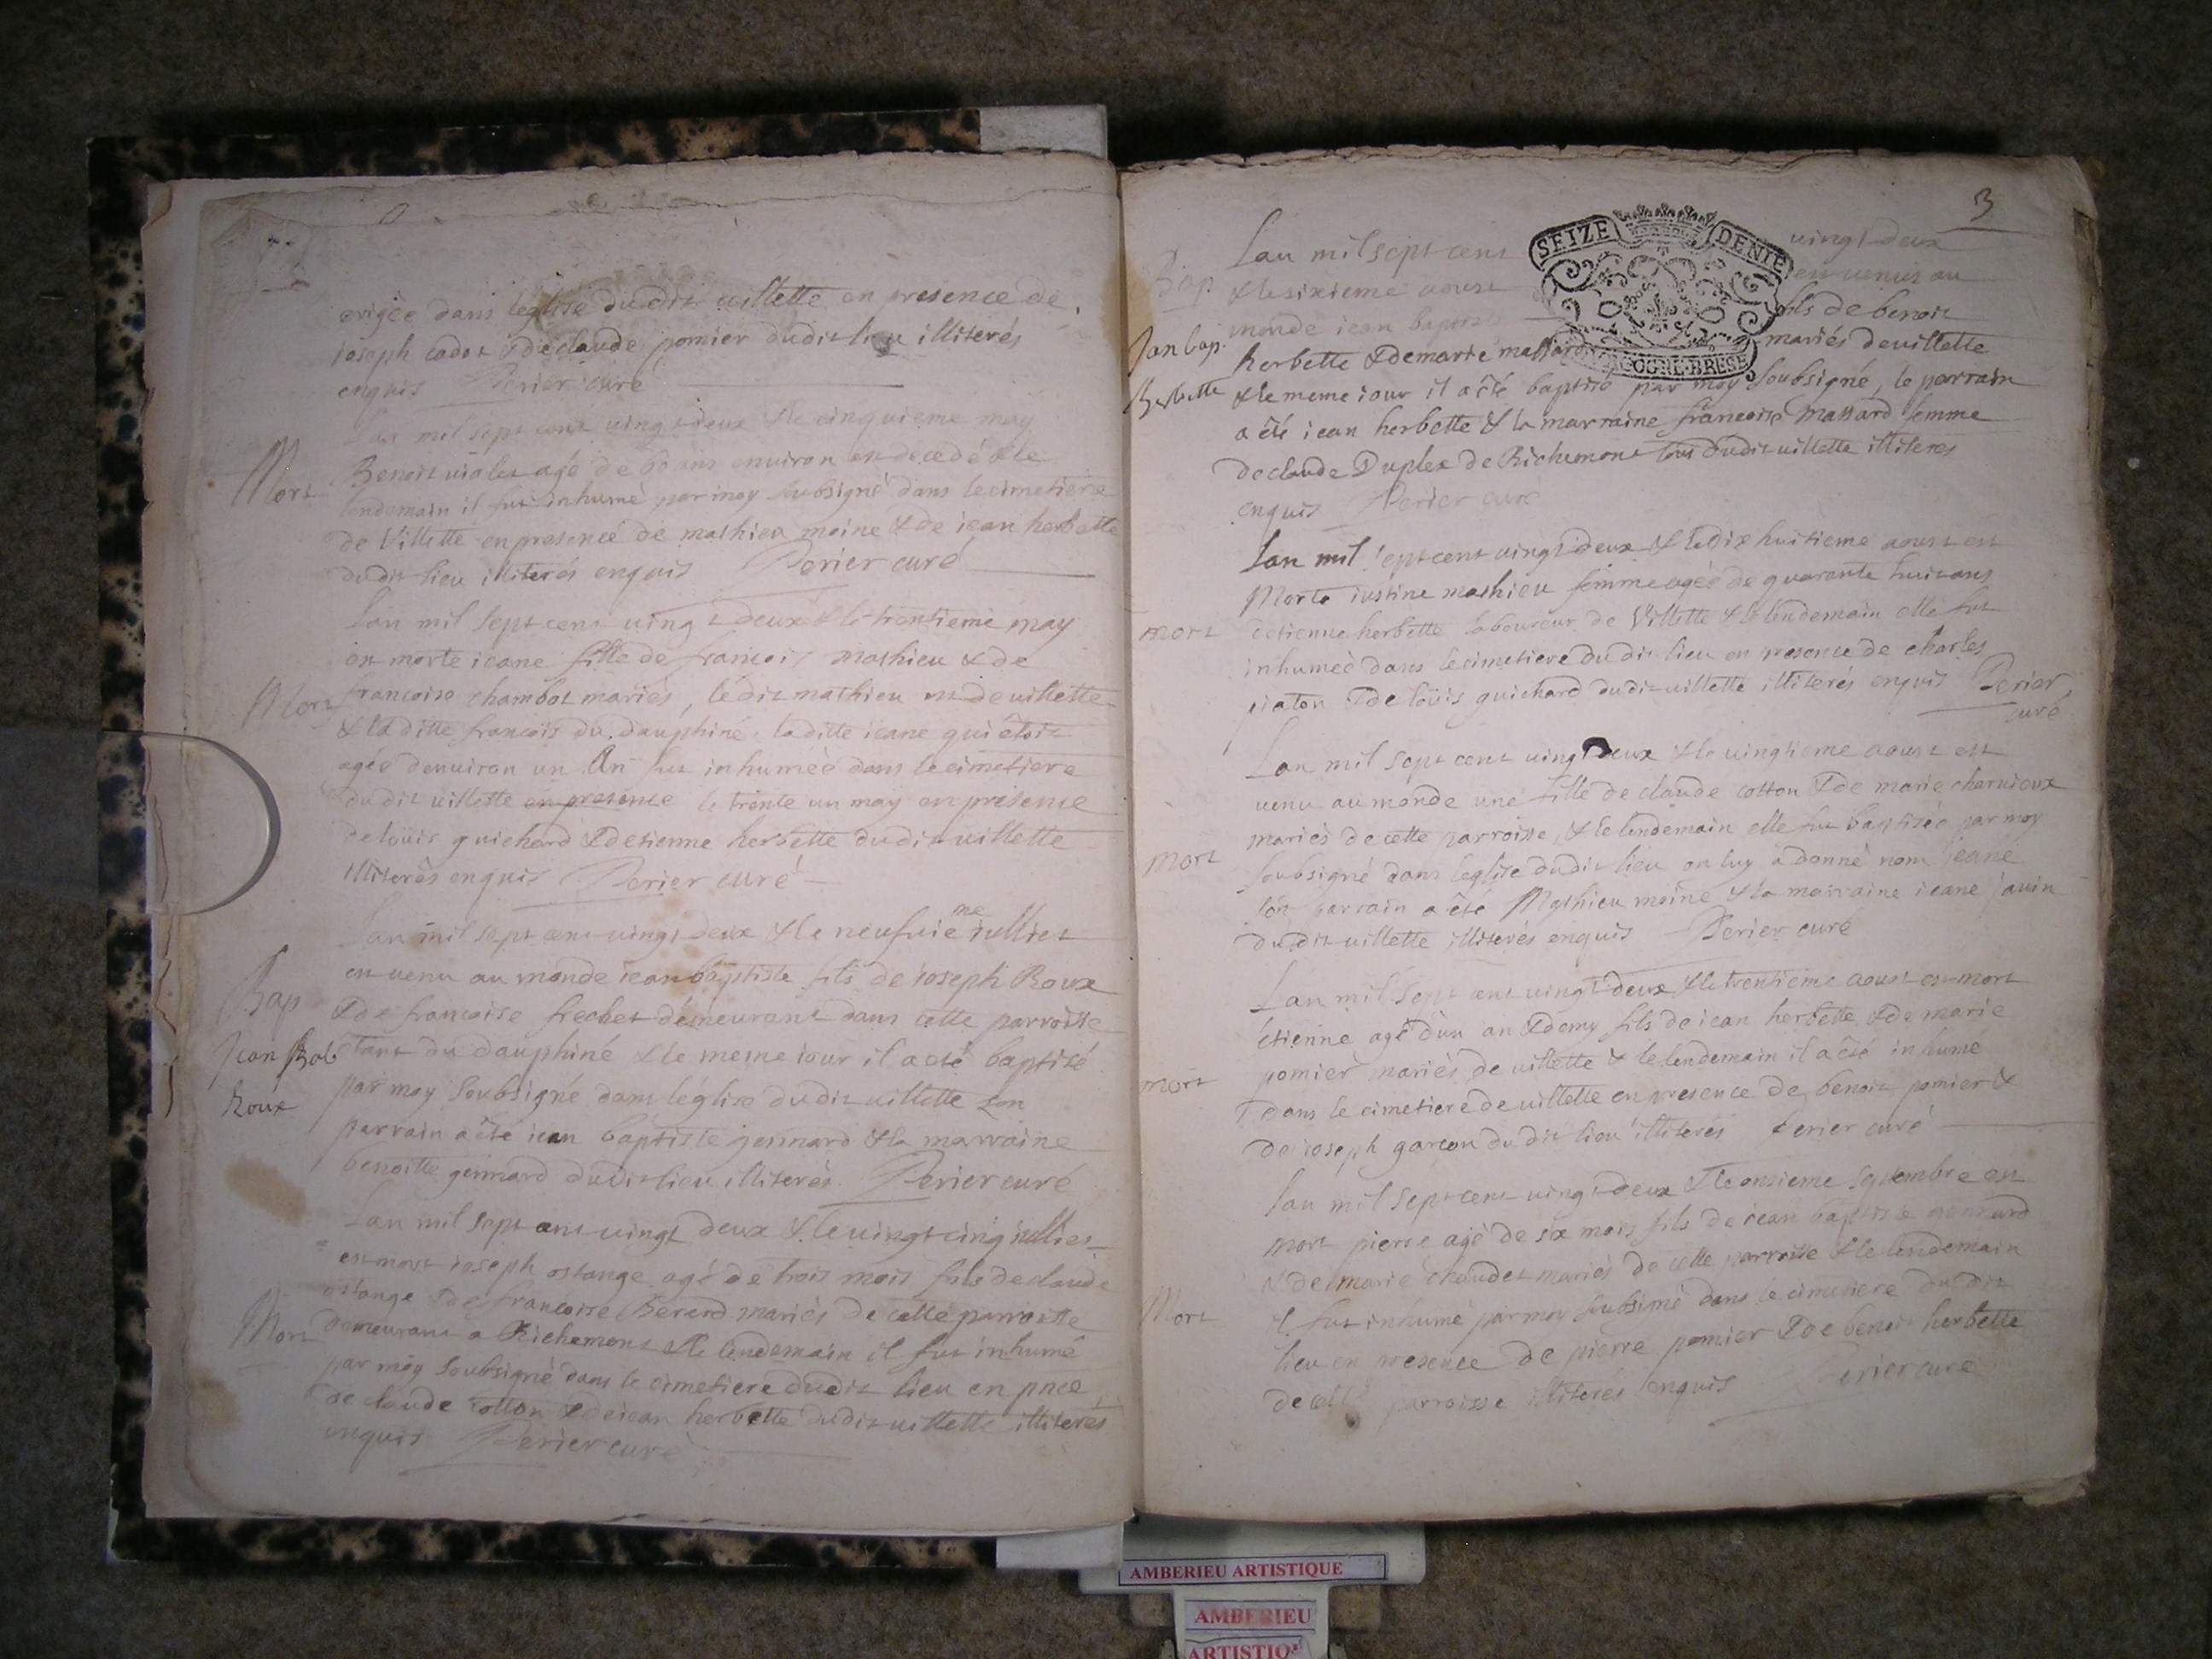 erigée dans leglise dudit villette en presence de
ioseph cadot & de claude pomier dudit lieu illiterés
enquis Perier curé
Lan mil sept cent vingt deux & le cinquieme may
Mort
Benoit violet agé de ans environ est decedé & le
lendemain il fut inhumé par moy soubsigné dans le cimetiere
de Villette en presence de mathieu moine & de iean herbette
dudit lieu illiterés enquis Perier curé
Lan mil sept cent vingt deux & le trentieme may
est morte ieane fille de francois mathieu & de
Mort
francoise chambot mariés, ledit mathieu est de villette
& la ditte francois du dauphiné. laditte ieane qui étoit
agée denviron un An fut inhumée dans le cimetiere
dudit villette en presence le trente un may en presence
de loüis guichard & detienne herbette dudit villette
illiterés enquis Perier curé
Lan mil sept cent vingt deux & le neufvieme iulliet
est venu au monde iean baptiste fils de ioseph Roux
Bap
& de francoise frechet demeurant dans cette parroisse
Jean Bab
etant du dauphiné & le meme iour il a eté baptisé
Roux
par moy soubsigné dans léglise dudit villette son
parrain a été iean baptiste germard & la marraine
benoitte germard dudit lieu illiterés. Perier curé
Lan mil sept cent vingt deux & le vingt cinq iulliet
est mort ioseph ostange agé de trois mois fils de claude
ostange & de francoise Berard mariés de cette parroisse
Mort
demeurant a Richemont & le lendemain il fut inhumé
par moy soubsigné dans le cimetiere dudit lieu en pnce
de claude cotton & de iean herbette dudit villette illiterés
enquis Perier curé
3
SEIZE DENIE
OGNE·BRESE
Lan mil sept cent vingt deux
Bap
& le sixieme aoust est venus au
monde iean baptis fils de benoit
Jan bap.
herbette & de marie massard mariés de villette
Herbette
& le meme iour il a été baptisé par moy soubsigné, le parrain
a été iean herbette & la marraine francoise massard femme
de claude Duplex de Richemont tous dudit villette illiteres
enquis Perier curé
Lan mil sept cent vingt deux & le dix huitieme aoust est
Morte iustine mathieu femme agée de quarante huit ans
mort
detienne herbette laboureur de Villette & le lendemain elle fut
inhumeé dans le cimetiere dudit lieu en presence de charles
piaton & de loüis guichard dudit villette illiterés enquis Perier
curé
Lan mil sept cent vingt deux & le vingtieme aoust est
venu au monde une fille de claude cotton & de marie charvieux
mariés de cette parroisse, & le lendemain elle fut baptisée par moy
Mort
soubsigné dans leglise dudit lieu on luy a donné nom ieane
son parrain a été Mathieu moine & la marraine ieane
dudit villette illiterés enquis Perier curé
Lan mil sept cent vingt deux & le trentieme aoust est mort
étienne agé d'un an & demy fils de iean herbette & de marie
pomier mariés de villette & le lendemain il a été inhumé
mort
dans le cimetiere de villette en presence de benoit pomier &
de ioseph garcon dudit lieu illiterés Perier curé
Lan mil sept cent vingt deux & le onsieme septembre est
mort pierre agé de six mois fils de iean baptiste germard
& de marie chaudet mariés de cette parroisse & le lendemain
Mort
il fut inhumé par moy soubsigné dans le cimetiere dudit
lieu en presence de pierre pomier & de benoit herbette
de cette parroisse illiterés enquis Perier curé
AMBERIEU ARTISTIQUE
AMBERIEU
ARTISTIQ